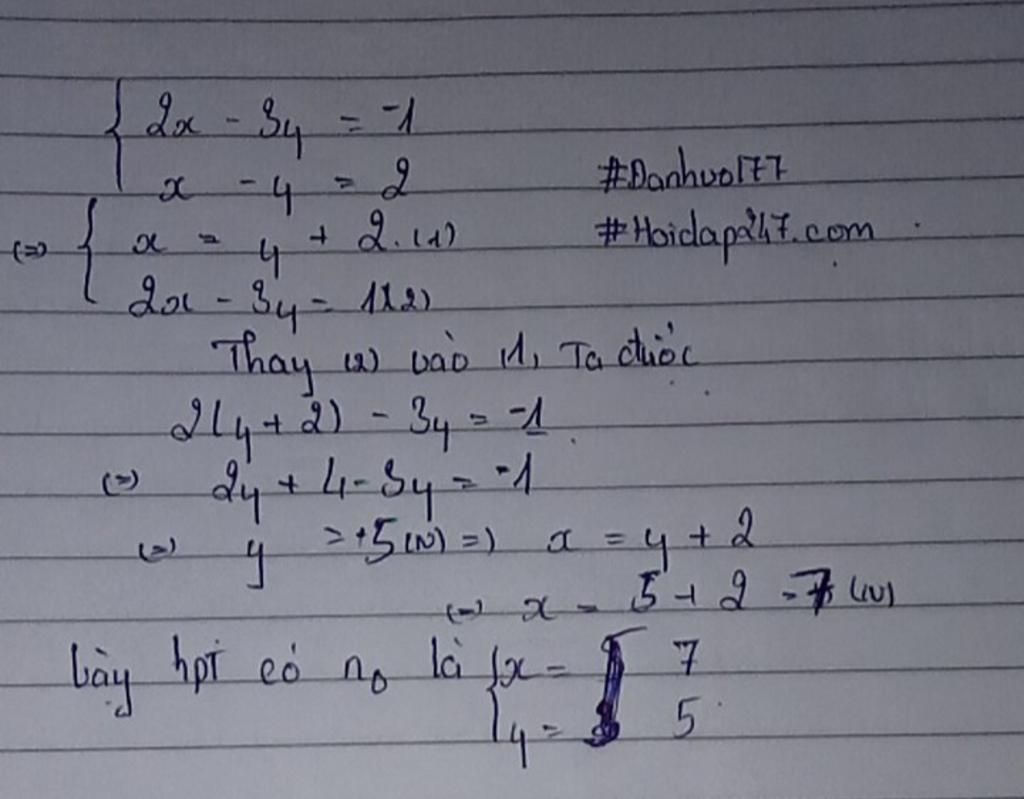 { 2x - 3y = -1
x - y = 2 #Danhvo177
<=> { x = y + 2. (1) #Hoidap247.com
2x - 3y = 1(2)
Thay (2) vào (1) Ta được
2(y + 2) - 3y = -1
(=) 2y + 4 - 3y = -1
(=) y = +5 (N) =) x = y + 2
(=) x = 5 + 2 = 7 (N)
Vậy hpt có n0 là { x = 7
y = 5